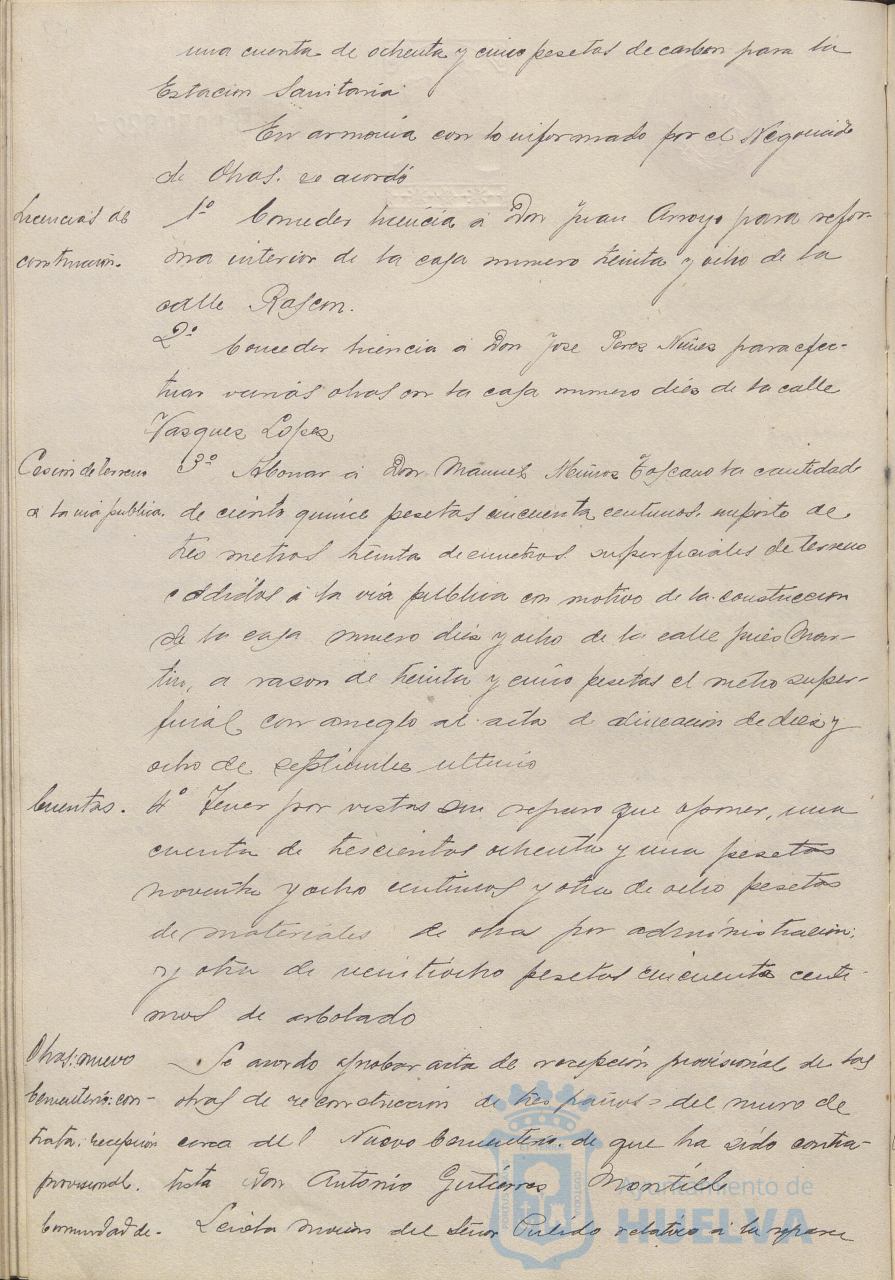 una cuenta de ochenta y cinco pesetas de carbon para la
Estacion Sanitaria.
En armonia con lo informado por el Negociado
de Obras. se acordó
Licencias de
construcción.
1º Conceder licencia á Don Juan Arroyo para refor-
ma interior de la casa numero treinta y ocho de la
calle Rascon.
2º Conceder licencia á Don Jose Perez Nuñez para efec-
tuar varias obras en la casa numero diez de la calle
Vazquez Lopez
Cesion de terreno
a la via publica.
3º Abonar á Don Manuel Muñoz Toscano la cantidad
de ciento quince pesetas cincuenta centimos. importe de
tres metros treinta decimetros superficiales de terreno
cedidos á la via publica con motivo de la construccion
de la casa numero diez y ocho de la calle Mar-
tin, a razon de treinta y cinco pesetas el metro super-
ficial con arreglo al acta de alineacion de diez y
ocho de septiembre ultimo
Cuentas.
4º Tener por vistas sin reparo que oponer, una
cuenta de trescientas ochenta y una pesetas
noventa y ocho centimos y otra de ocho pesetas
de materiales de obra por administracion;
y otra de veintiocho pesetas cincuenta centi-
mos de arbolado
Obras: nuevo
Cementerio: con-
trata: recepción
provisional.
Se acordo aprobar acta de recepción provisional de las
obras de reconstruccion de tres paños del muro de
cerca del Nuevo Cementerio. de que ha sido contra-
tista Don Antonio Gutiérrez Montiel
Comunidad de-
Leida mocion del Señor Pulido relativa á la repara
Ayuntamiento de
HUELVA